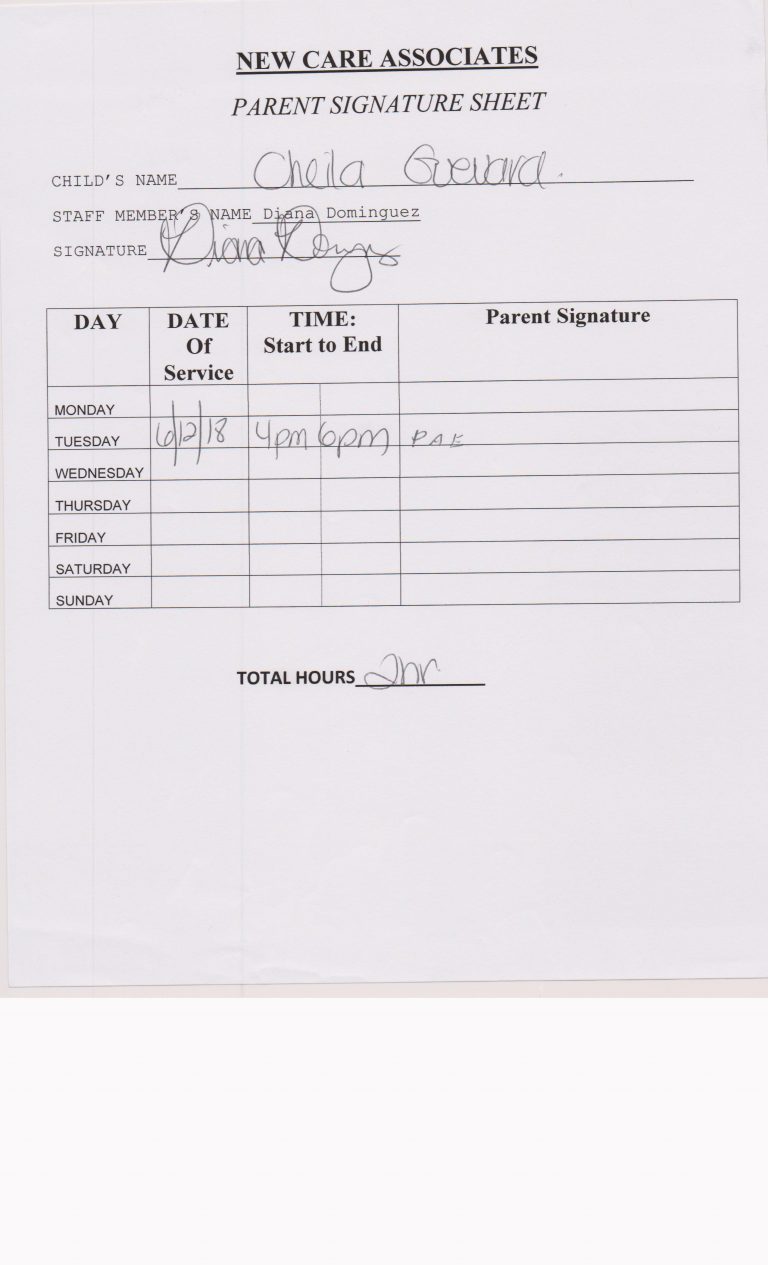 NEW CARE ASSOCIATES
PARENT SIGNATURE SHEET
CHILD'S NAME Cheila Guevara.
STAFF MEMBER'S NAME Diana Dominguez
SIGNATURE Diana
DAY DATE Of Service TIME: Start to End Parent Signature
MONDAY
TUESDAY 6/12/18 4pm 6pm PAE
WEDNESDAY
THURSDAY
FRIDAY
SATURDAY
SUNDAY
TOTAL HOURS 2hr